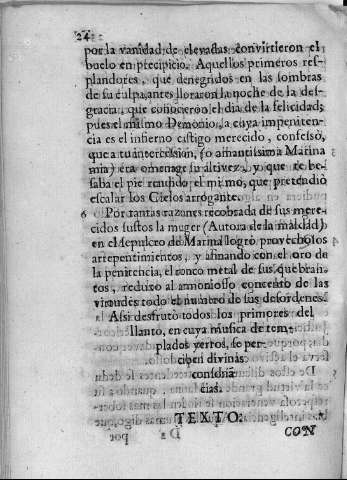 24
por la vanidad de elevarſe convirtieron el
buelo en precipicio. Aquellos primeros reſ-
plandores, que denegridos en las ſombras
de ſu culpa, antes lloraron la noche de la deſ-
gracia, que conocieron el dia de la felicidad;
pues el miſmo Demonio, a cuya impeniten-
cia es el infierno caſtigo merecido, confeſsò,
que a tu interceſsion, (o amantiſsima Marina
mia) era omenage ſu altivez, y que te be-
ſaba el pie rendido el miſmo, que pretendiò
eſcalar los Cielos arrogante.
6 Por tantas razones recobrada de ſus mere-
cidos ſuſtos la muger (Autora de la maldad)
en el ſepulcro de Marina logrò provechoſos
arrepentimientos, y afinando con el oro de
la penitencia, el ronco metal de ſus quebran-
tos, reduxo al armonioſo concento de las
virtudes todo el numero de ſus deſordenes.
Aſsi desfrutò todos los primores del
llanto, en cuya muſica de tem-
plados yerros, ſe per-
ciben divinas
conſonã-
cias.
TEXTO:
CON